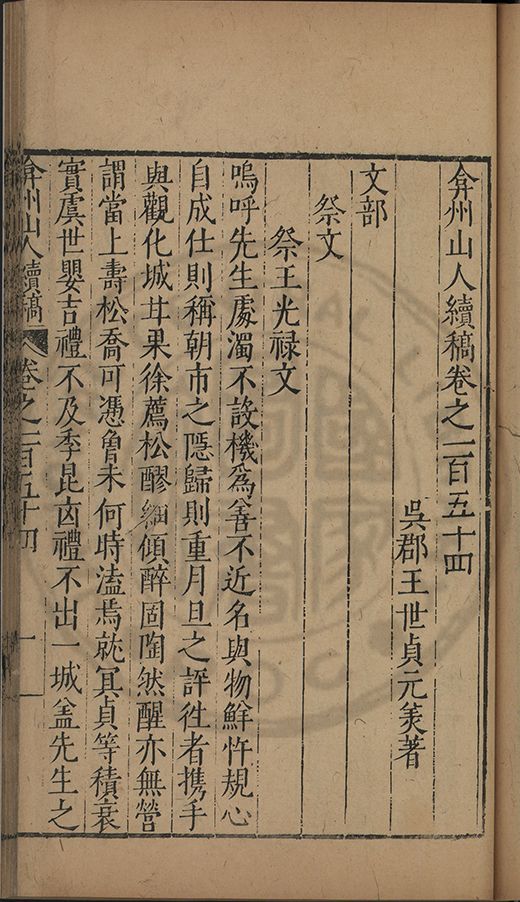 弇州山人續稿卷之一百五十四
吳郡王世貞元美著
文部
祭文
祭王光禄文
嗚呼先生處濁不設機爲善不近名與物鮮忤規心
自成仕則稱朝市之隱歸則重月旦之評徃者携手
與觀化城茸果徐薦松醪細傾醉固陶然醒亦無營
謂當上壽松喬可憑魯未何時溘焉就冥貞等積衰
實虞世嬰吉禮不及季昆凶禮不出一城盖先生之
弇州山人續稿 卷之一百五十四 一